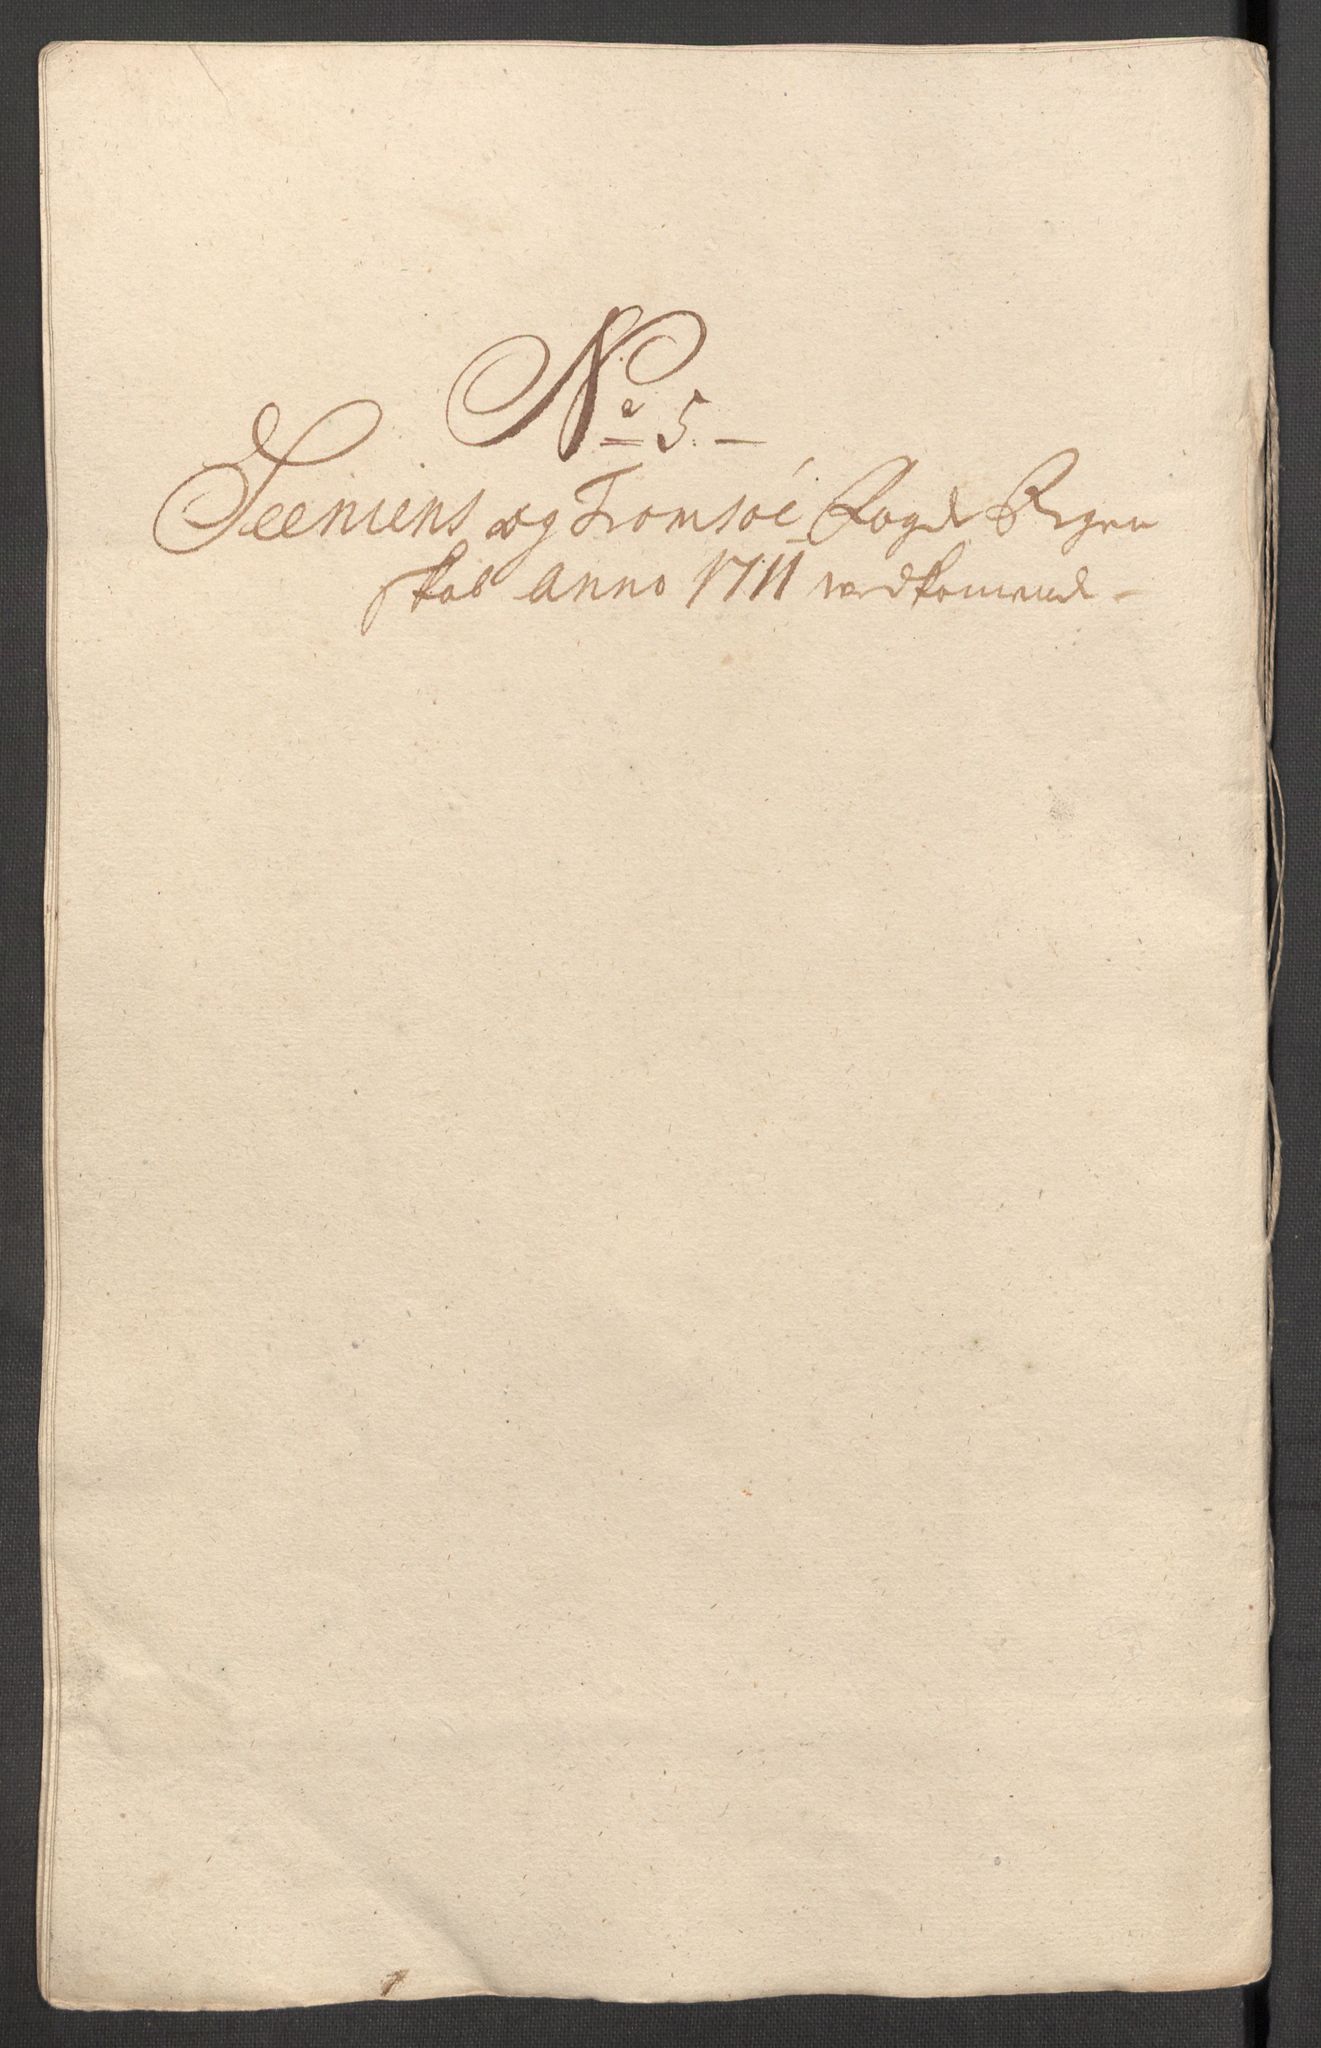 No 5.
Seeniens og Tromsøe Fogde Regen
skab Anno 1711 vedkomende